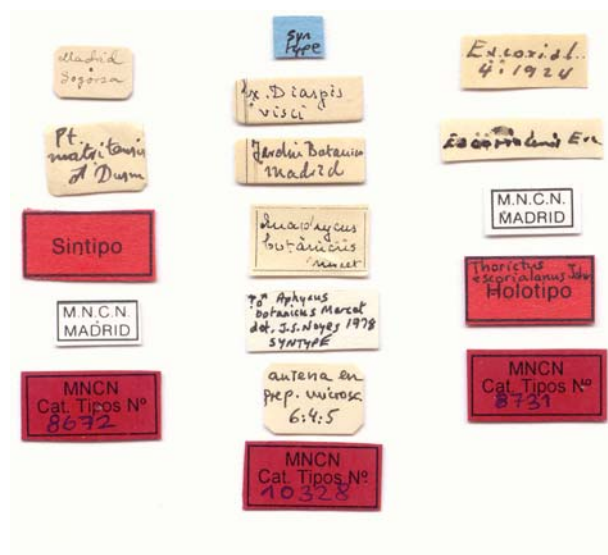 Madrid
Pt.
matritensis
Sintipo
M.N.C.N.
MADRID
MNCN
Cat. Tipos Nº
8672
Syn
type
Ex. Diaspis
visci
Jardin Botanico
Madrid
botanicus
Mercet
♀♂ Aphycus
botanicus Mercet
det. J.S. Noyes 1978
SYNTYPE
antena en
prep. microsc
6:4:5
MNCN
Cat. Tipos Nº
10328
Escorial..
4:1924
M.N.C.N.
MADRID
Thorictus
escorialanus John
Holotipo
MNCN
Cat. Tipos Nº
8731